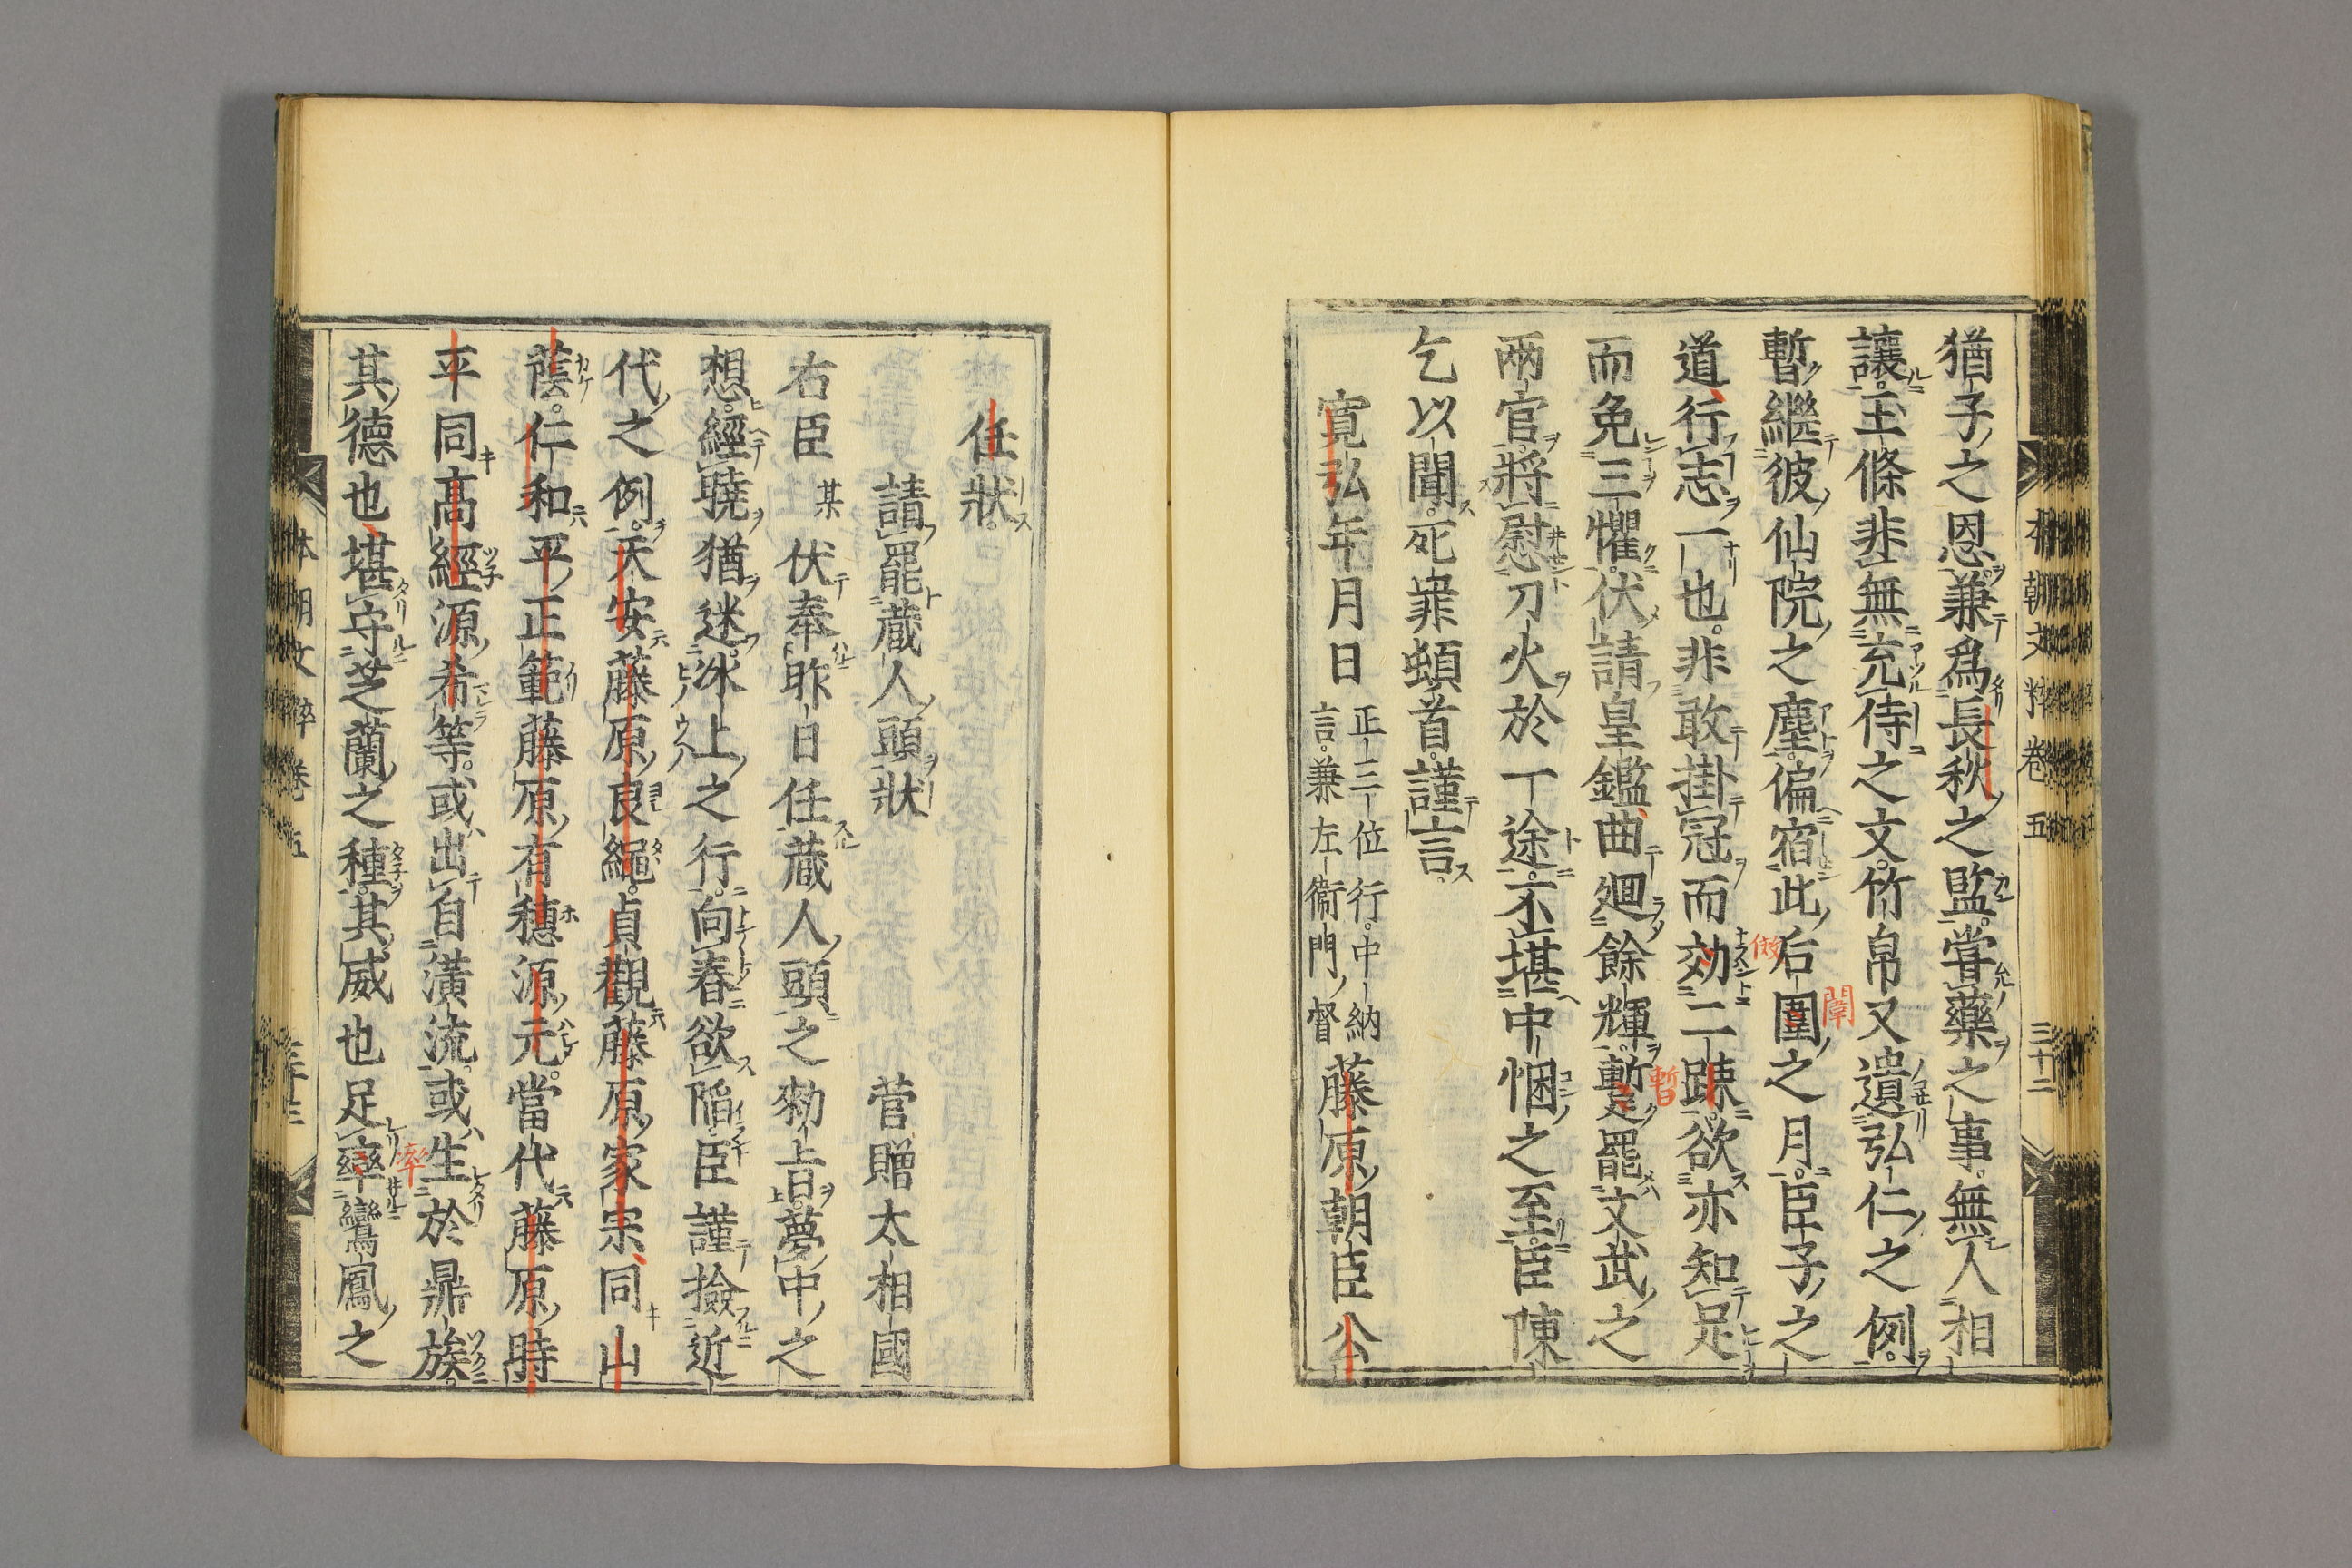 本朝文粹卷五
三十二
猶子之恩兼爲長秋之監甞藥之事無人相
讓玉條非無充侍之文竹帛又遺弘仁之例
暫繼彼仙院之塵偏宿此后圍之月臣子之
道行志一也非敢掛冠而効二踈欲亦知足
而免三懼伏請皇鑑曲廻餘輝蹔罷文武之
兩官將慰刀火於一途不堪中悃之至臣陳
乞以聞死罪頓首謹言
寛弘年月日 正三位行中納言兼左衛門督 藤原朝臣公
任狀
請罷藏人頭狀 菅贈太相國
右臣某伏奉昨日任藏人頭之勅占夢中之
想經曉猶迷氷上之行向春欲陷臣謹撿近
代之例天安藤原良繩貞觀藤原家宗同山
蔭仁和平正範藤原有穗源元當代藤原時
平同高經源希等或出自潢流或生於鼎族
其德也堪守芝蘭之種其威也足率鸞鳳之
本朝文粹卷五
三十三
倣
闈
暫
率